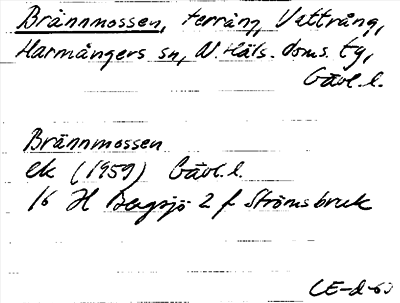 Brännmossen, terräng, Vattrång,
Harmångers sn, N. Häls. doms. tg,
Gävl. l.
Brännmossen
ek (1959) Gävl. l.
16 H Bergsjö 2 f Strömsbruk
CE-d-60